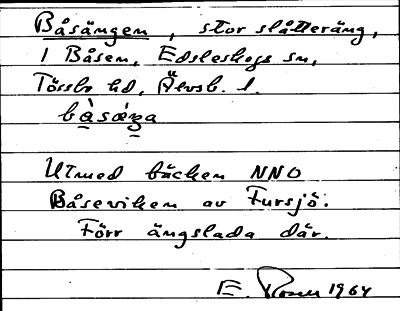 Båsängen, stor slåtteräng,
1 Båsen, Edsleskogs sn,
Tössbo hd, Älvsb. l.
bàsæŋa
Utmed bäcken NNO
Båseviken av Fursjö.
Förr ängslada där.
E. 1964